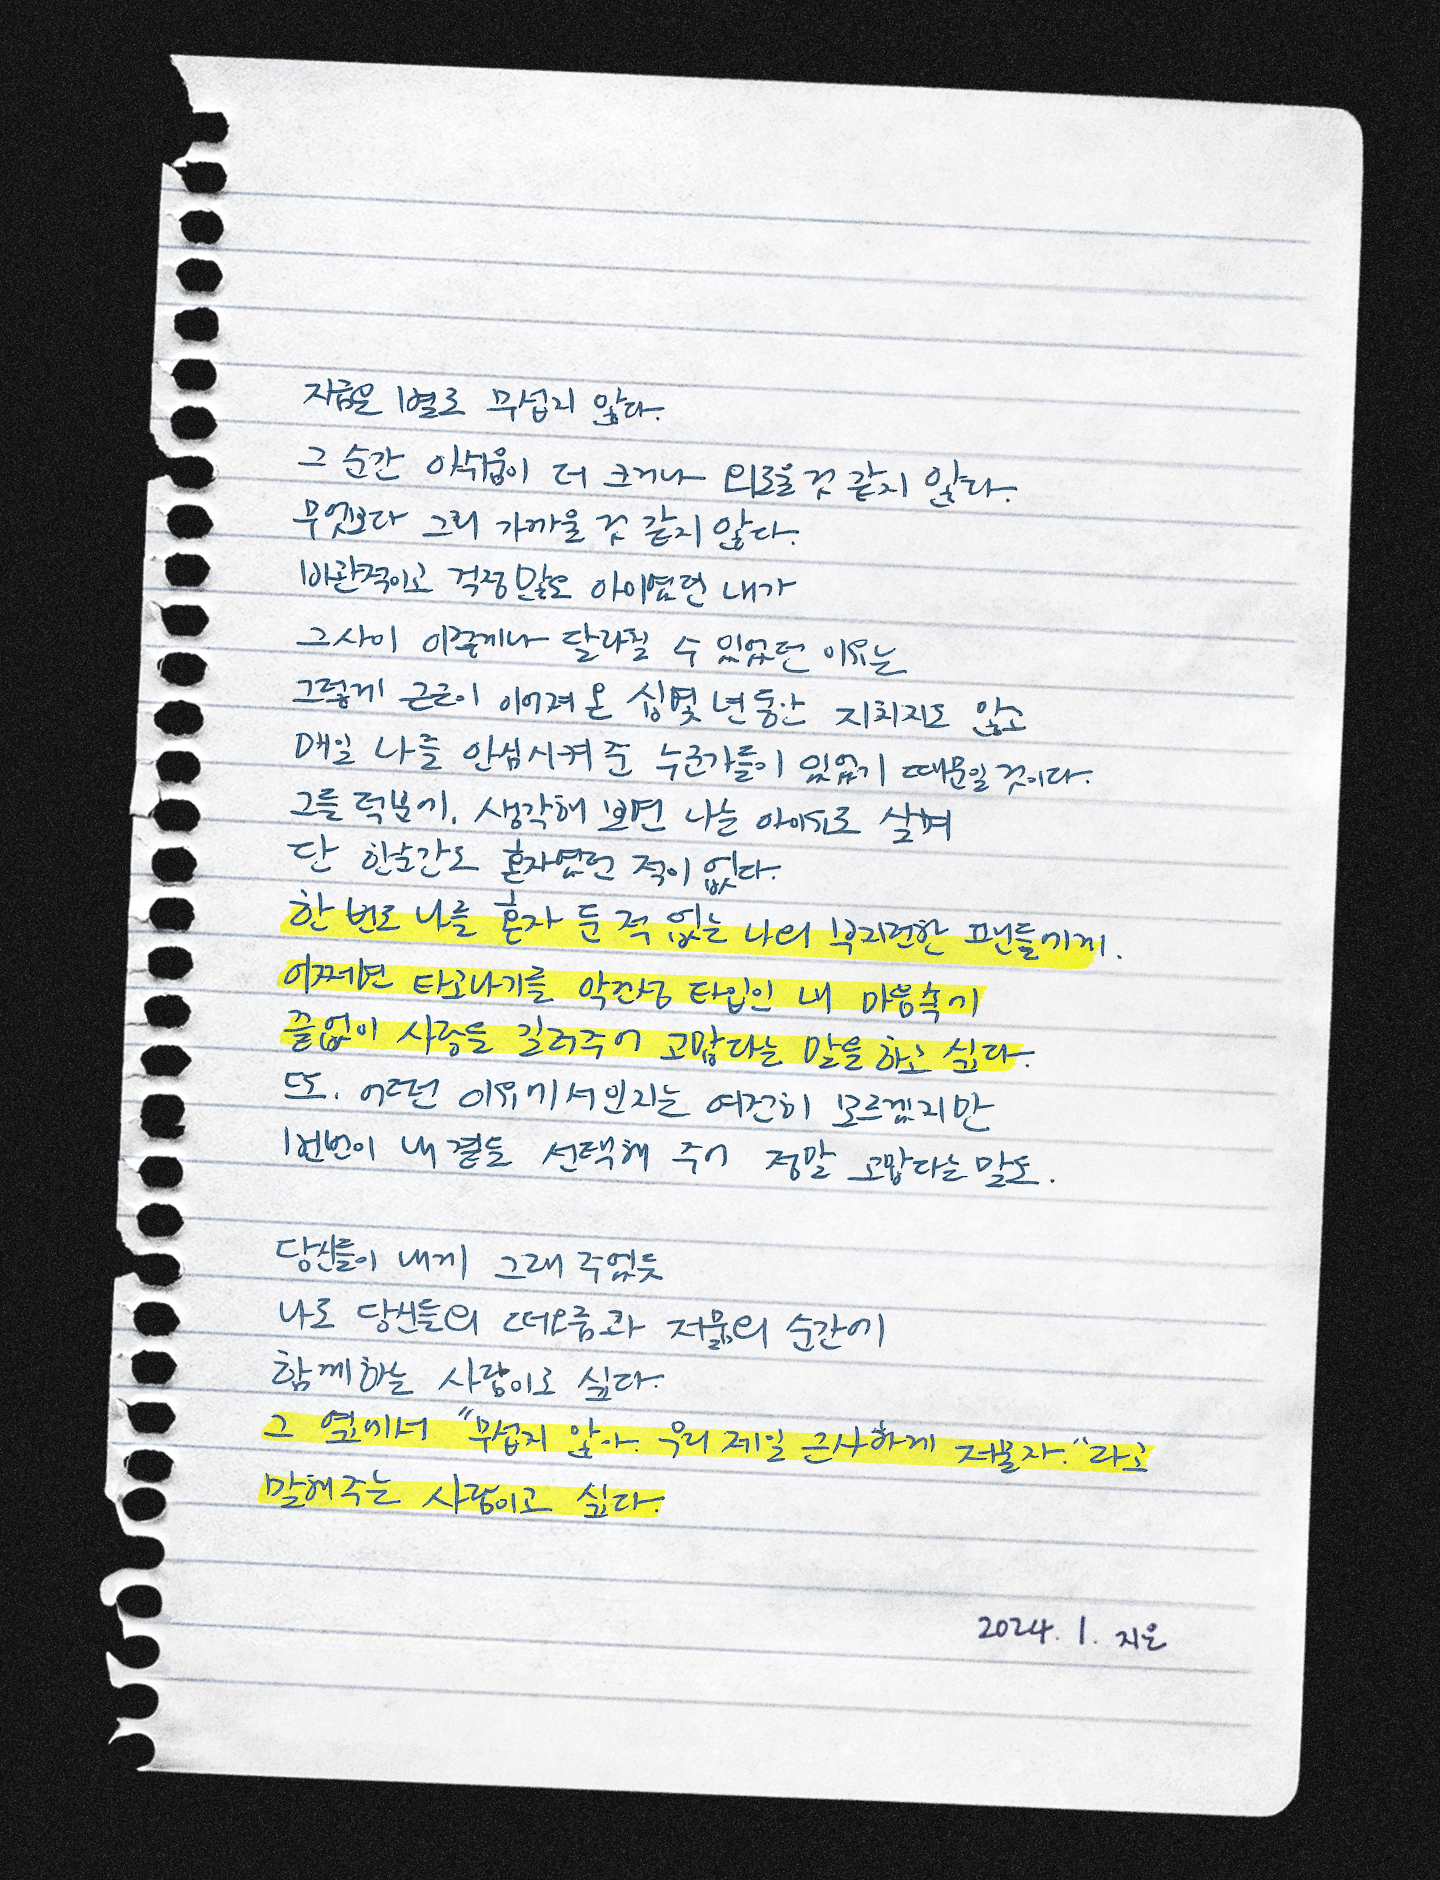 지금은 별로 무섭지 않다.
그 순간 아쉬움이 더 크거나 외로울 것 같지 않다.
무엇보다 그리 가까울 것 같지 않다.
비관적이고 걱정 많은 아이였던 내가
그 사이 이렇게나 달라질 수 있었던 이유는
그렇게 근근이 이어져 온 십몇 년 동안 지치지도 않고
매일 나를 안심시켜 준 누군가들이 있었기 때문일 것이다.
그들 덕분에. 생각해 보면 나는 아이유로 살며
단 한순간도 혼자였던 적이 없다.
한 번도 나를 혼자 둔 적 없는 나의 부지런한 팬들에게.
어쩌면 타고나기를 악건성 타입인 내 마음속에
끝없이 사랑을 길러주어 고맙다는 말을 하고 싶다.
또, 어떤 이유에서인지는 여전히 모르겠지만
번번이 내 곁을 선택해 주어 정말 고맙다는 말도.
당신들이 내게 그래 주었듯
나도 당신들의 떠오름과 저묾의 순간에
함께하는 사람이고 싶다.
그 옆에서 "무섭지 않아. 우리 제일 근사하게 저물자."라고
말해주는 사람이고 싶다.
2024. 1. 지은